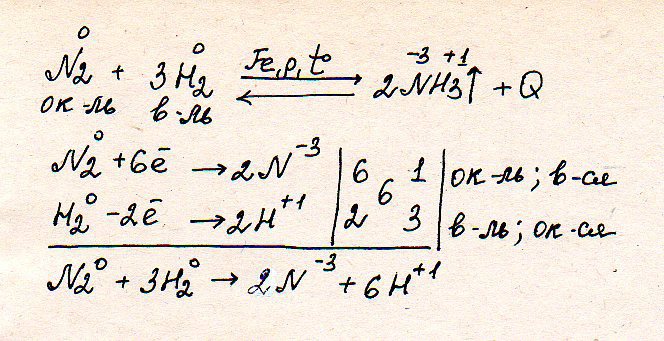 N₂⁰ + 3H₂⁰ ⇄ (Fe, p, t°) 2N⁻³H₃⁺¹↑ + Q
ок-ль в-ль
N₂⁰ + 6ē → 2N⁻³ | 6 6 1 | ок-ль; в-ся
H₂⁰ - 2ē → 2H⁺¹ | 2 3 | в-ль; ок-ся
N₂⁰ + 3H₂⁰ → 2N⁻³ + 6H⁺¹